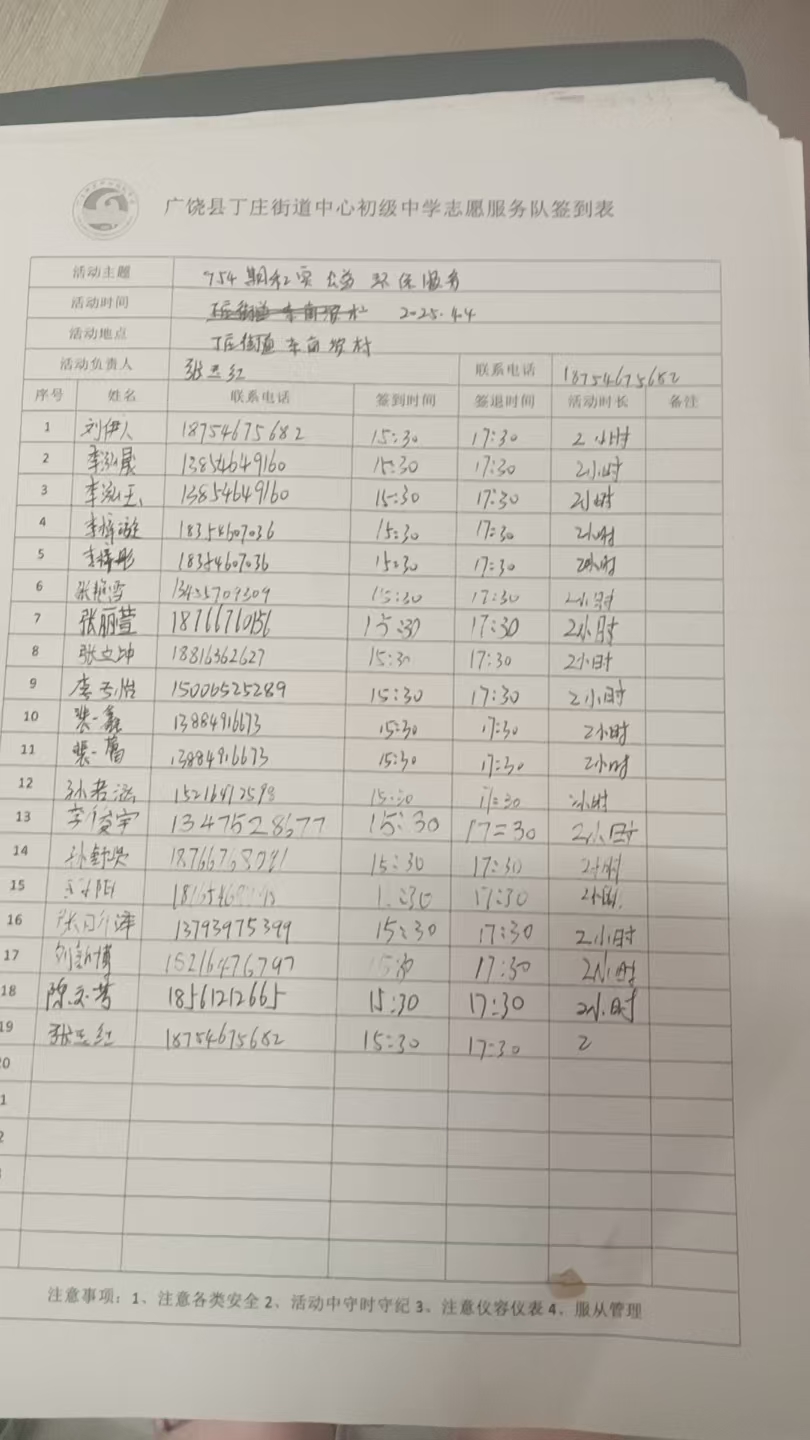 广饶县丁庄街道中心初级中学志愿服务队签到表
活动主题 954期红 公益 环保服务
活动时间 2025.4.4
活动地点 丁庄街道
活动负责人 联系电话 18754675682
序号 姓名 联系电话 签到时间 签退时间 活动时长 备注
1 刘伊人 18754675682 15:30 17:30 2小时
2 李泓晟 13854649160 15:30 17:30 2小时
3 13854649160 15:30 17:30 2小时
4 18354607036 15:30 17:30 2小时
5 李梓彤 18354607036 15:30 17:30 2小时
6 张艳雪 15:30 17:30 2小时
7 张丽萱 15:30 17:30 2小时
8 张文坤 18816362627 15:30 17:30 2小时
9 15006525289 15:30 17:30 2小时
10 裴一鑫 13884916673 15:30 17:30 2小时
11 裴一菡 13884916673 15:30 17:30 2小时
12 孙若涵 15:30 17:30 2小时
13 李俊宇 1347528677 15:30 17=30 2小时
14 15:30 17:30 2小时
15 17:30
16 13793975399 15:30 17:30 2小时
17 15216476797 17:30 2小时
18 18561212665 15:30 17:30 2小时
19 18754675682 15:30 17:30 2
注意事项：1、注意各类安全 2、活动中守时守纪 3、注意仪容仪表 4、服从管理